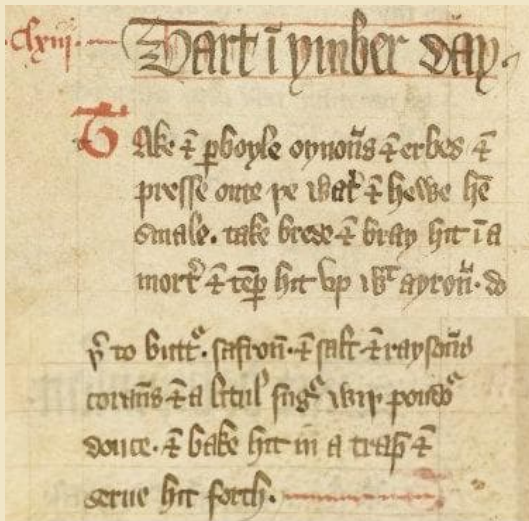 .clxiij. Tart ī ymber day.
Take ⁊ ꝑboyle oynoūs ⁊ erbes ⁊
presse oute þe wat̉ ⁊ hewe hē
smale. take brede ⁊ bray hit ī a
mort̉ ⁊ tēꝑ hit vp wᵗ ayroū. do
þ̉ to butt̉. safroū. ⁊ salt. ⁊ raysoūs
coraūs ⁊ a litul sug̉ wiþ poud̉
douce. ⁊ bake hit in a trap ⁊
serue hit forth.